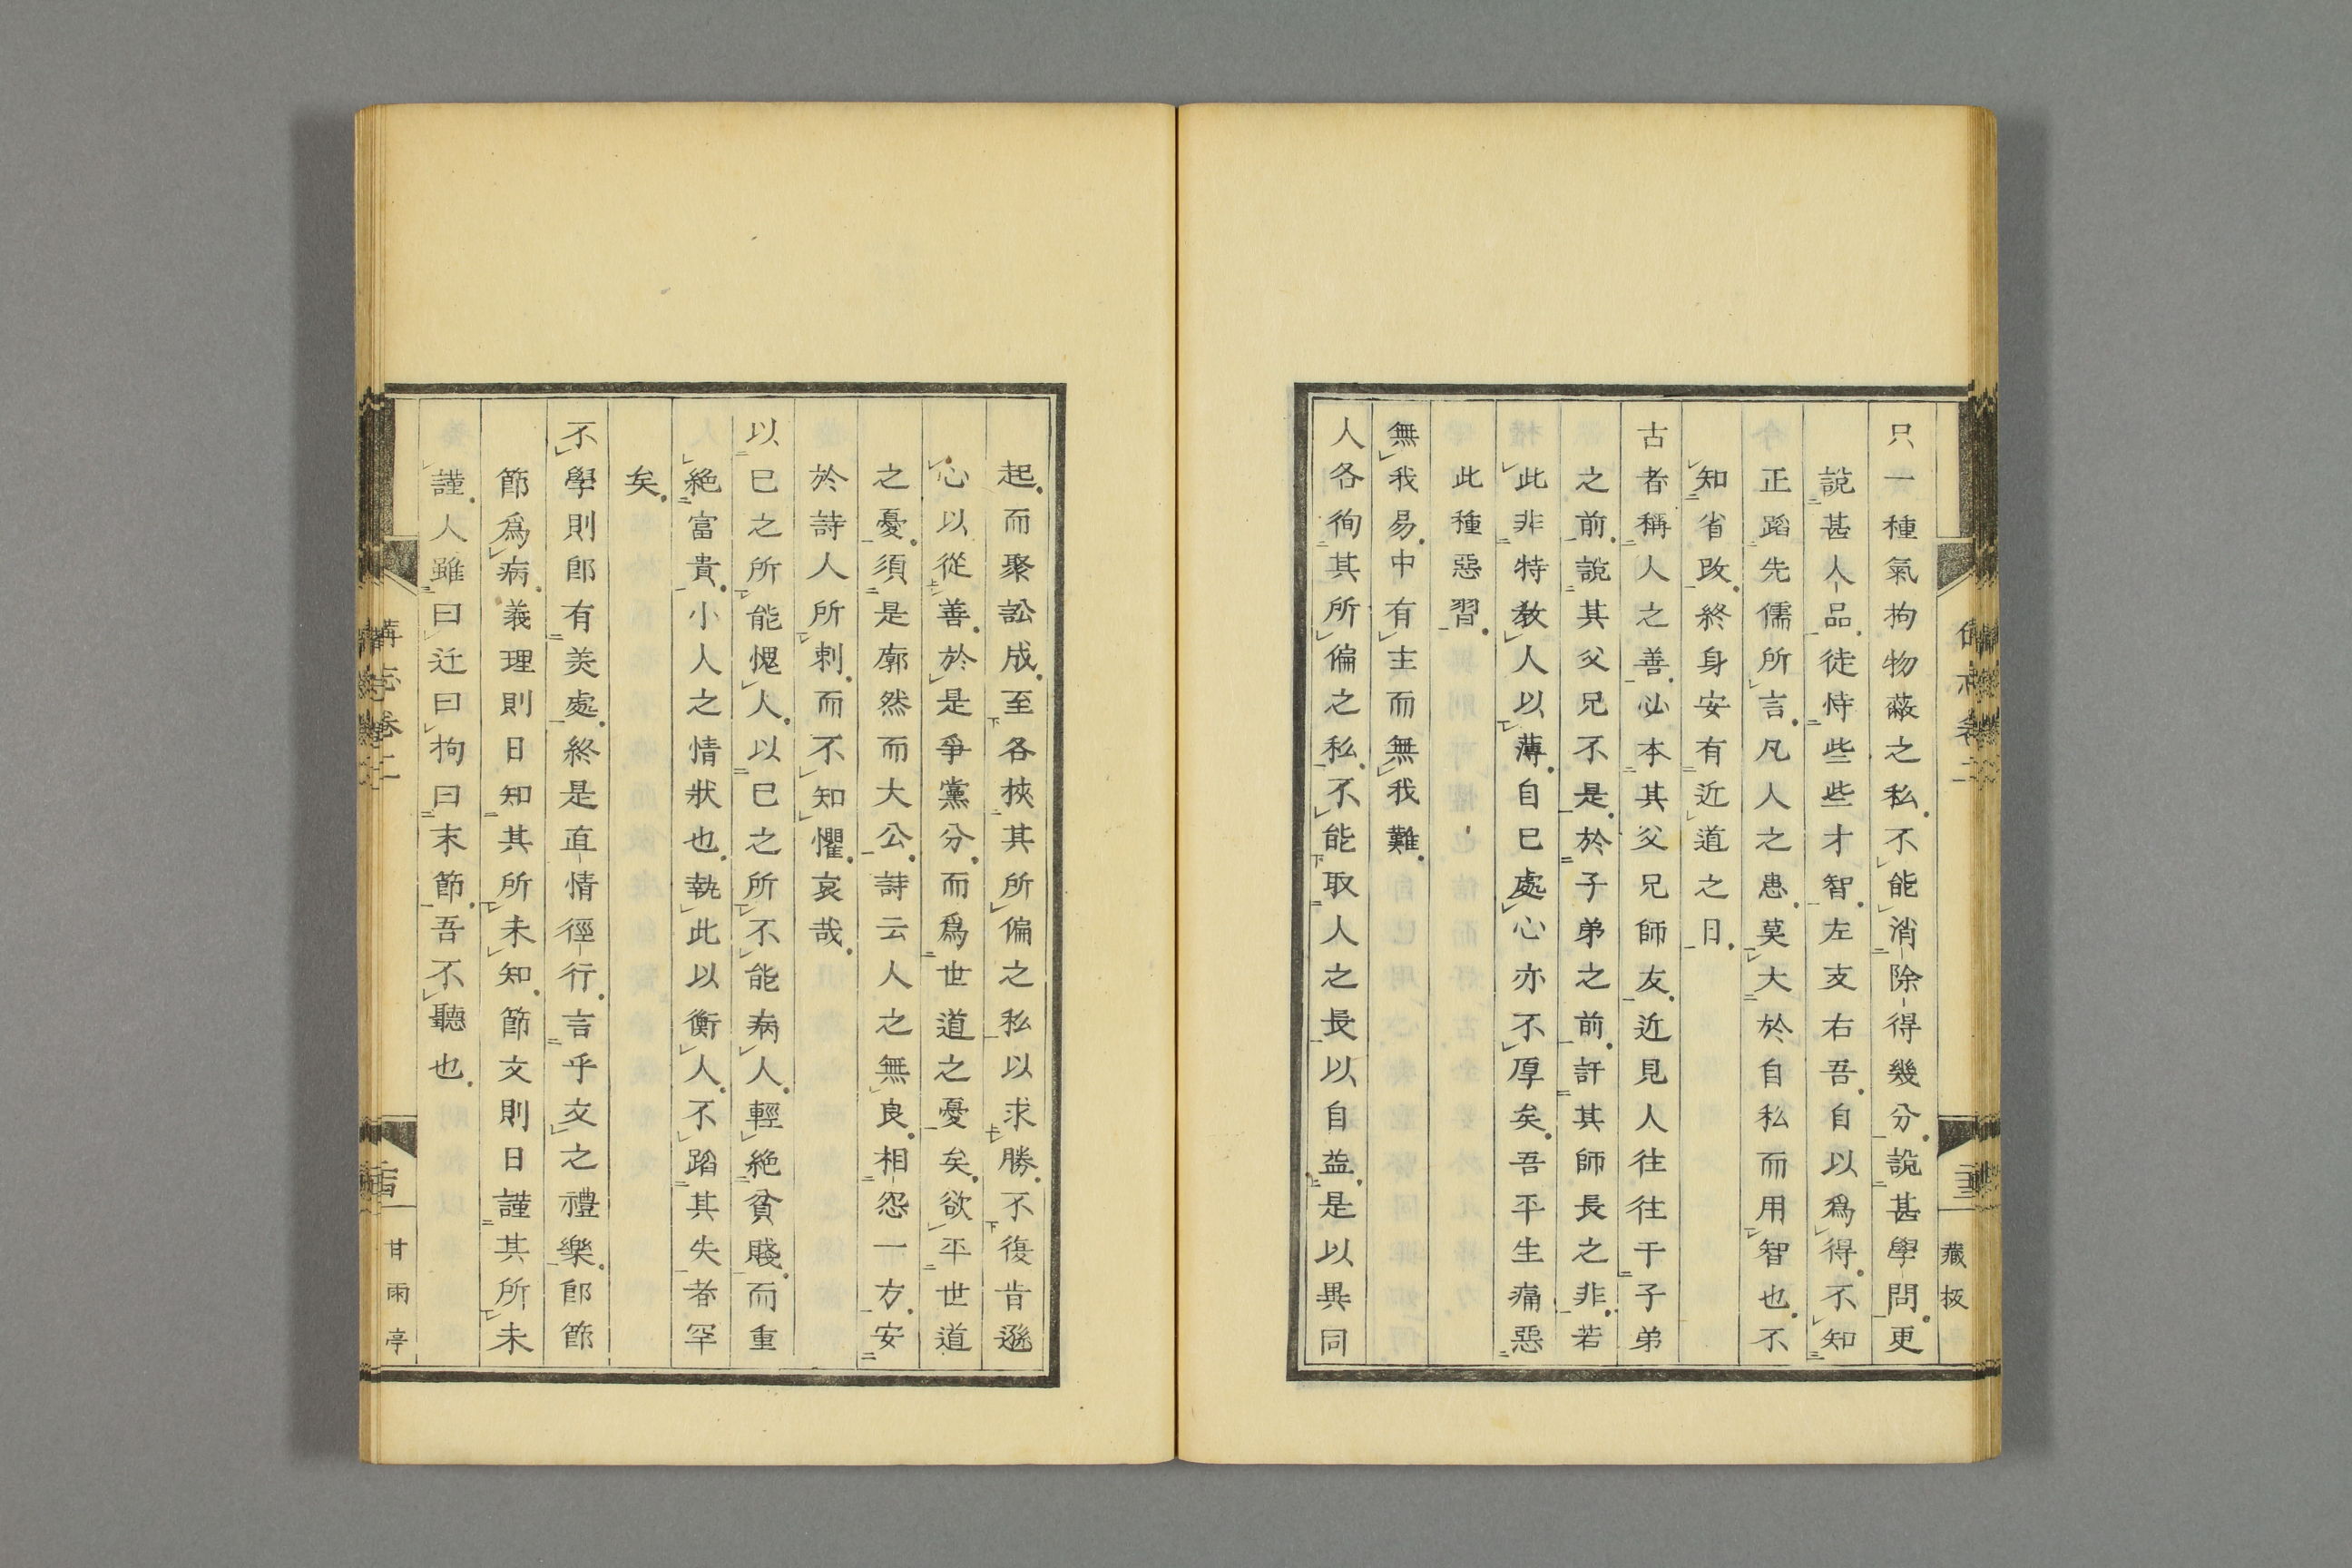 只一種氣拘物蔽之私不能消除得幾分說甚學問更
說甚人品徒恃些些才智左支右吾自以爲得不知
正蹈先儒所言凡人之患莫大於自私而用智也不
知省改終身安有近道之日
古者稱人之善必本其父兄師友近見人往往于子弟
之前說其父兄不是於子弟之前訐其師長之非若
此非特教人以薄自已處心亦不厚矣吾平生痛惡
此種惡習
無我易中有主而無我難
人各徇其所偏之私不能取人之長以自益是以異同
藏板
起而聚訟成至各挾其所偏之私以求勝不復肯遜
心以從善於是爭黨分而爲世道之憂矣欲平世道
之憂須是廓然而大公詩云人之無良相怨一方安
於詩人所刺而不知懼哀哉
以已之所能愧人以已之所不能病人輕絶貧賤而重
絶富貴小人之情狀也執此以衡人不蹈其失者罕
矣
不學則卽有美處終是直情徑行言乎文之禮樂卽節
節爲病義理則日知其所未知節文則日謹其所未
謹人雖曰迂曰拘曰末節吾不聽也
講志卷二
甘雨亭